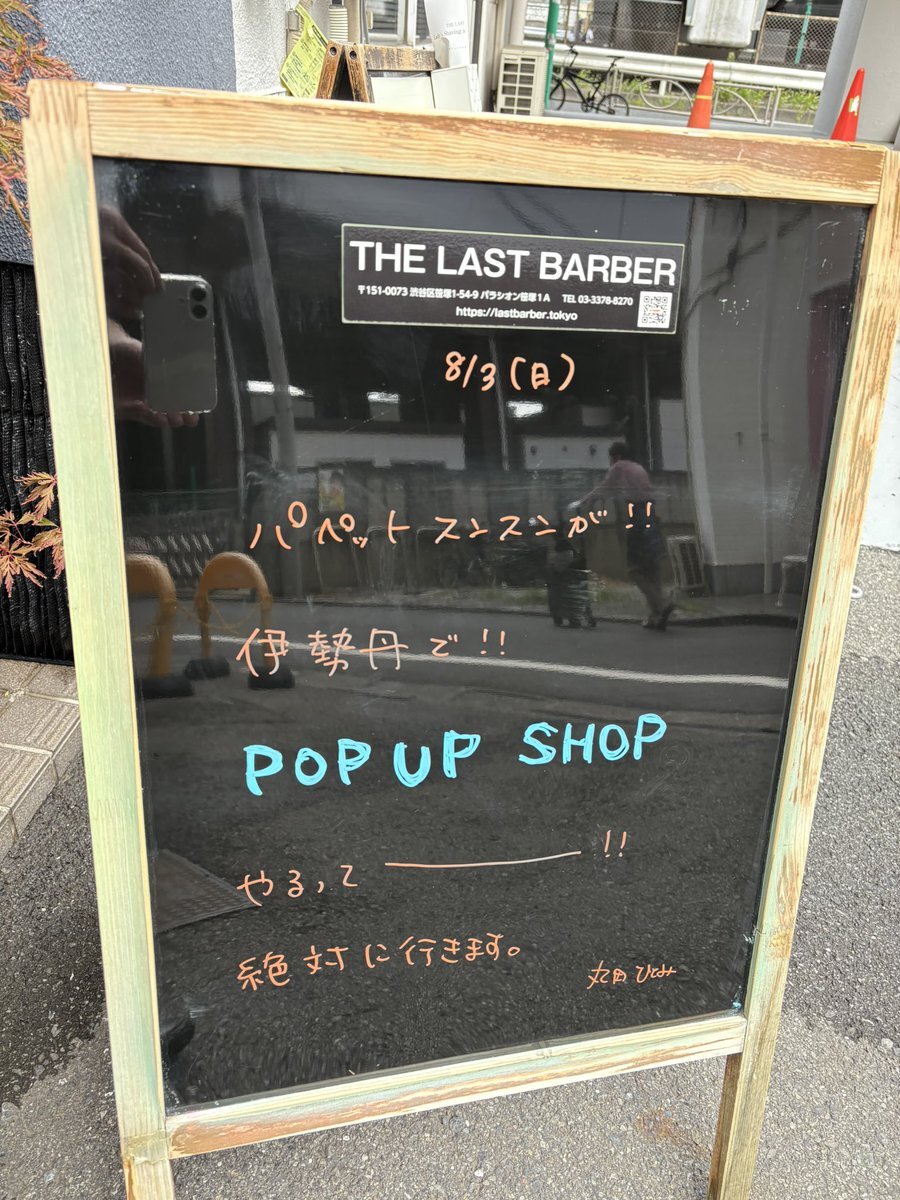 THE LAST BARBER
〒151-0073 渋谷区笹塚1-54-9 パラシオン笹塚1A TEL 03-3378-8270
https://lastbarber.tokyo
8/3(日)
パペットスンスンが!!
伊勢丹で!!
POP UP SHOP
やるって━━━!!
絶対に行きます。
丸田ひとみ